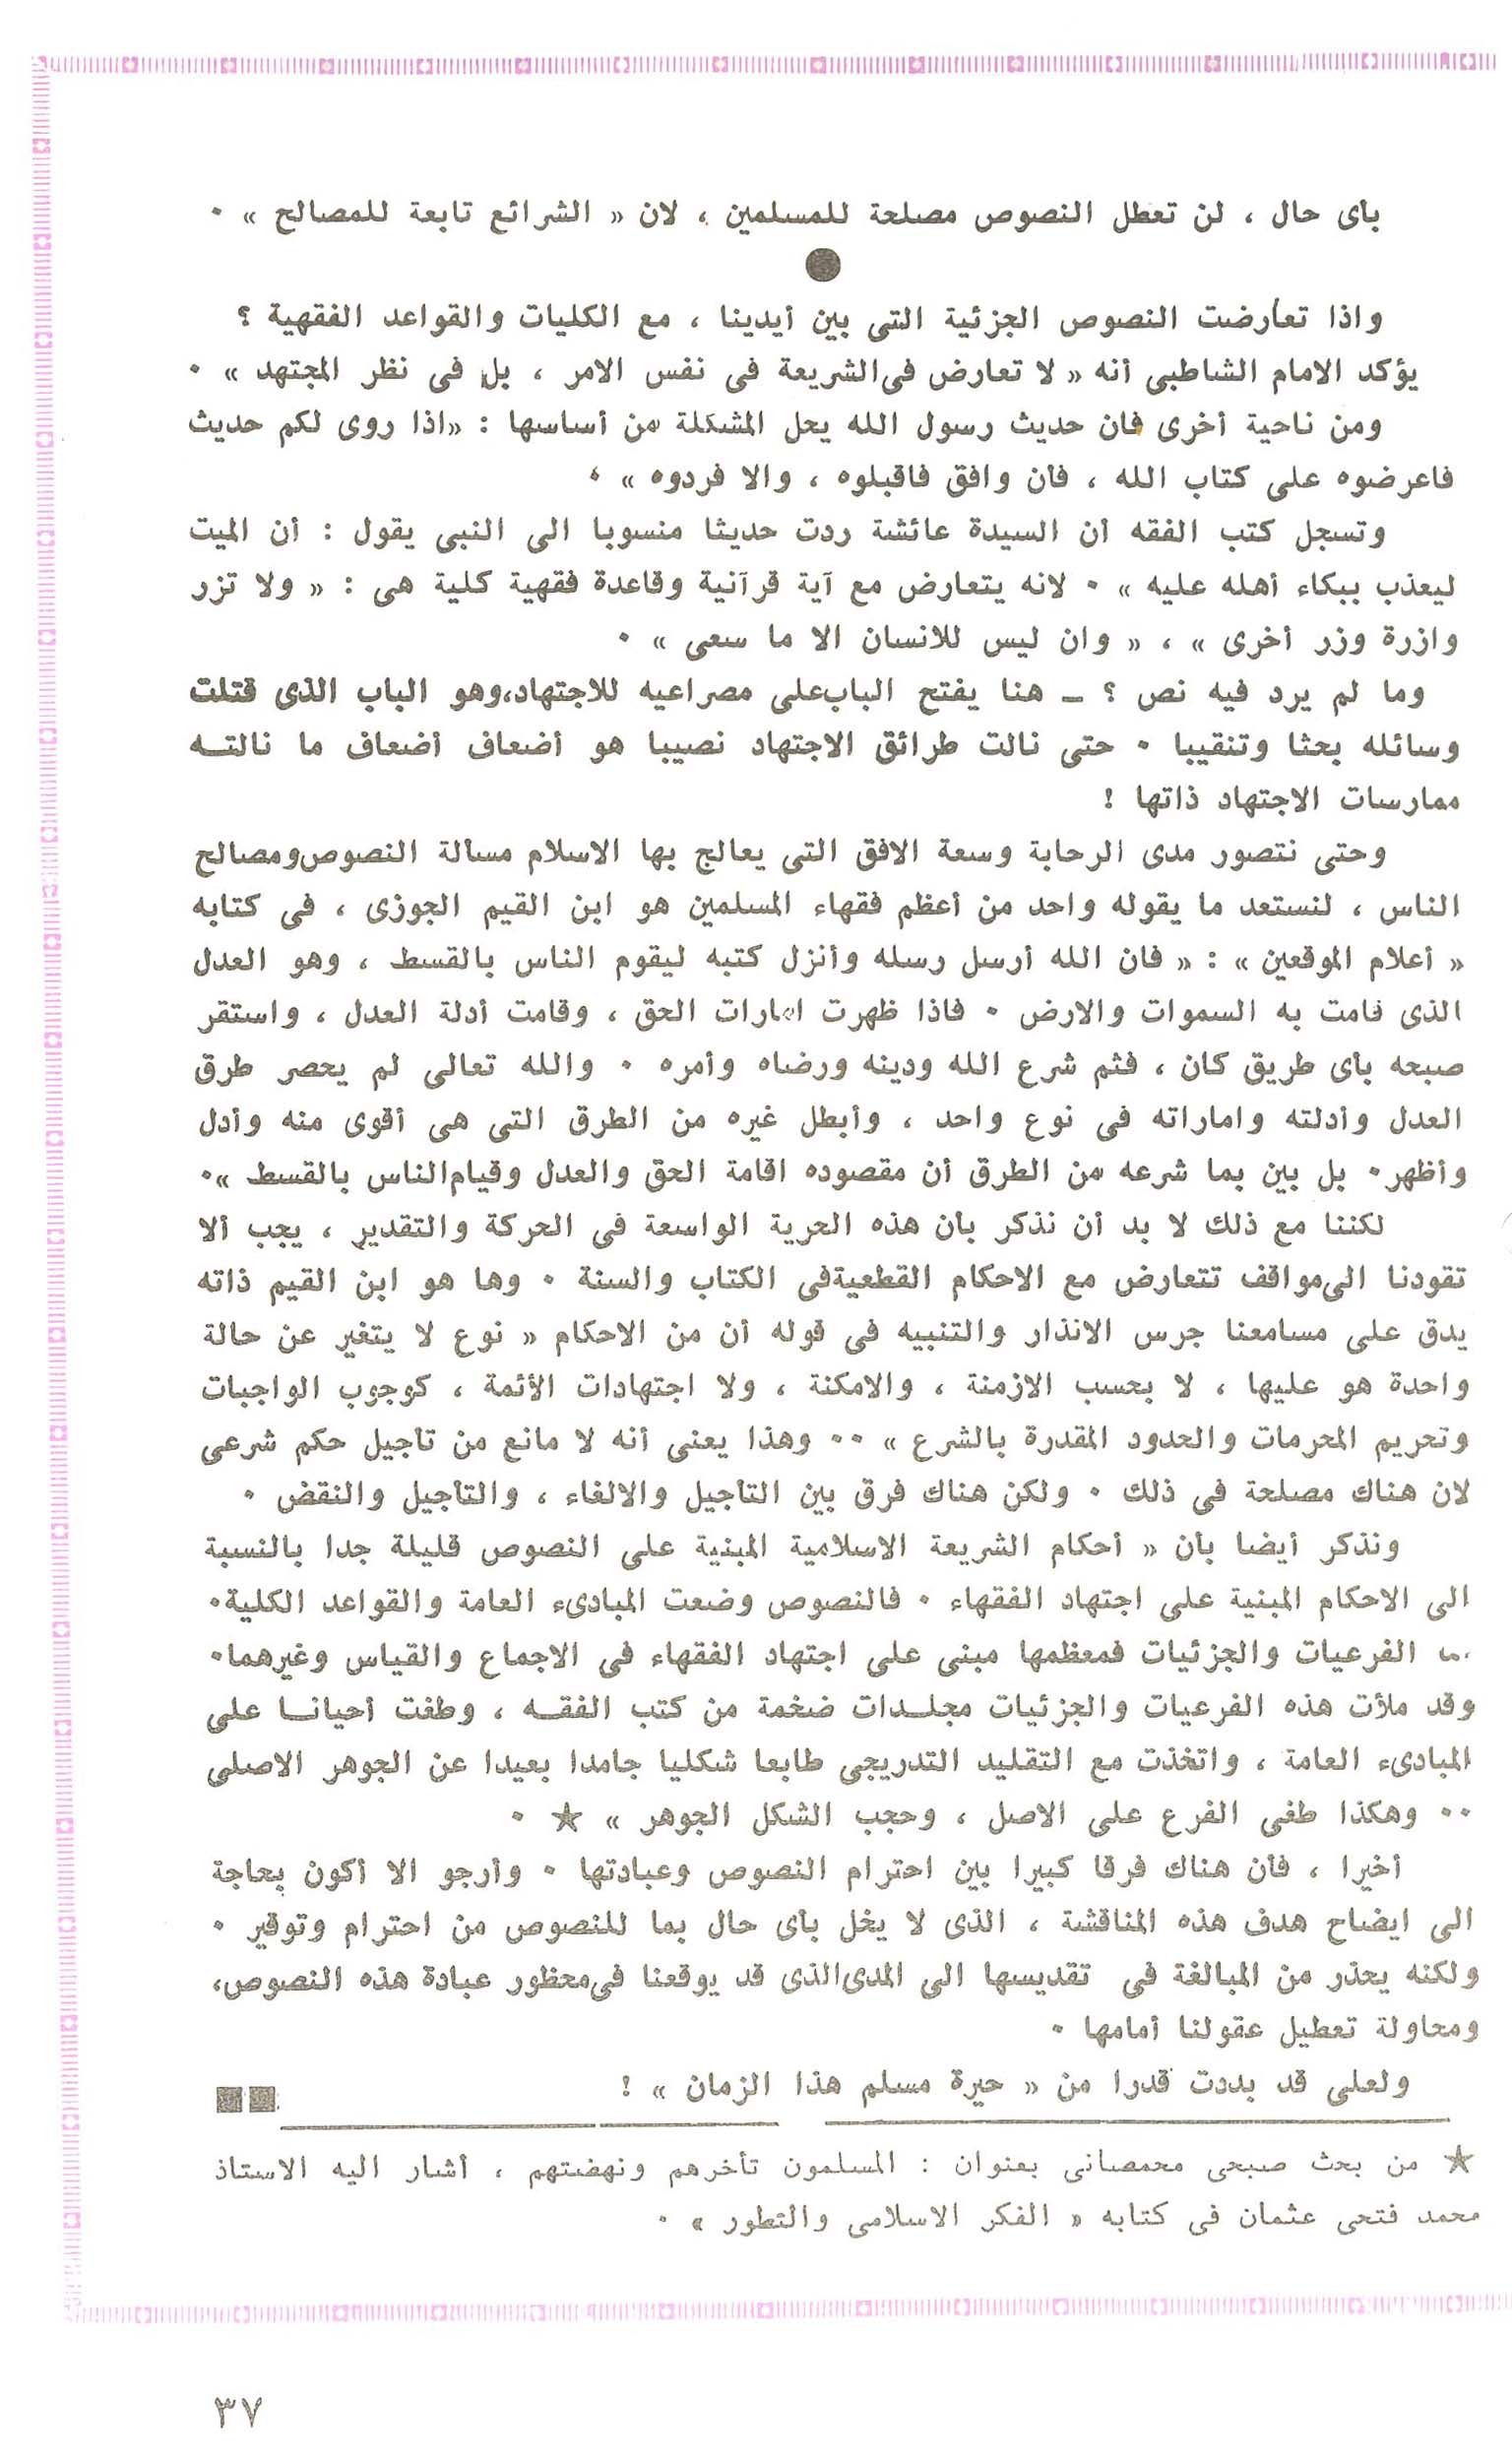 بأى حال ، لن تعطل النصوص مصلحة للمسلمين ، لان « الشرائع تابعة للمصالح » ٠
واذا تعارضت النصوص الجزئية التى بين أيدينا ، مع الكليات والقواعد الفقهية ؟
يؤكد الامام الشاطبى أنه « لا تعارض فى الشريعة فى نفس الامر ، بل فى نظر المجتهد » ٠
ومن ناحية أخرى فان حديث رسول الله يحل المشكلة من أساسها : «اذا روى لكم حديث
فاعرضوه على كتاب الله ، فأن وافق فاقبلوه ، والا فردوه » ٠
وتسجل كتب الفقه أن السيدة عائشة ردت حديثا منسوبا الى النبى يقول : أن الميت
ليعذب ببكاء أهله عليه » ٠ لانه يتعارض مع آية قرآنية وقاعدة فقهية كلية هى : « ولا تزر
وازرة وزر أخرى » ، « وان ليس للانسان الا ما سعى » ٠
وما لم يرد فيه نص ؟ ـ هنا يفتح الباب على مصراعيه للاجتهاد،وهو الباب الذى قتلت
وسائله بحثا وتنقيبا ٠ حتى نالت طرائق الاجتهاد نصيبا هو أضعاف أضعاف ما نالتـه
ممارسات الاجتهاد ذاتها !
وحتى نتصور مدى الرحابة وسعة الافق التى يعالج بها الاسلام مسألة النصوص ومصالح
الناس ، لنستعد ما يقوله واحد من أعظم فقهاء المسلمين هو ابن القيم الجوزى ، فى كتابه
« أعلام الموقعين » : « فان الله أرسل رسله وأنزل كتبه ليقوم الناس بالقسط ، وهو العدل
الذى قامت به السموات والارض ٠ فاذا ظهرت امارات الحق ، وقامت أدلة العدل ، واستقر
صبحه بأى طريق كان ، فثم شرع الله ودينه ورضاه وأمره ٠ والله تعالى لم يحصر طرق
العدل وأدلته واماراته فى نوع واحد ، وأبطل غيره من الطرق التى هى أقوى منه وأدل
وأظهر٠ بل بين بما شرعه من الطرق أن مقصوده اقامة الحق والعدل وقيام الناس بالقسط »٠
لكننا مع ذلك لا بد أن نذكر بأن هذه الحرية الواسعة فى الحركة والتقدير ، يجب ألا
تقودنا الى مواقف تتعارض مع الاحكام القطعية فى الكتاب والسنة ٠ وها هو ابن القيم ذاته
يدق على مسامعنا جرس الانذار والتنبيه فى قوله أن من الاحكام « نوع لا يتغير عن حالة
واحدة هو عليها ، لا بحسب الازمنة ، والامكنة ، ولا اجتهادات الأئمة ، كوجوب الواجبات
وتحريم المحرمات والحدود المقدرة بالشرع » ٠٠ وهذا يعنى أنه لا مانع من تأجيل حكم شرعى
لان هناك مصلحة فى ذلك ٠ ولكن هناك فرق بين التأجيل والالغاء ، والتأجيل والنقض ٠
ونذكر أيضا بأن « أحكام الشريعة الاسلامية المبنية على النصوص قليلة جدا بالنسبة
الى الاحكام المبنية على اجتهاد الفقهاء ٠ فالنصوص وضعت المبادىء العامة والقواعد الكلية٠
الفرعيات والجزئيات فمعظمها مبنى على اجتهاد الفقهاء فى الاجماع والقياس وغيرهما٠
وقد ملأت هذه الفرعيات والجزئيات مجلـدات ضخمة من كتب الفقـه ، وطغت أحيانـا على
المبادىء العامة ، واتخذت مع التقليد التدريجى طابعا شكليا جامدا بعيدا عن الجوهر الاصلى
٠٠ وهكذا طغى الفرع على الاصل ، وحجب الشكل الجوهر » ★ ٠
أخيرا ، فأن هناك فرقا كبيرا بين احترام النصوص وعبادتها ٠ وأرجو الا أكون بحاجة
الى ايضاح هدف هذه المناقشة ، الذى لا يخل بأى حال بما للنصوص من احترام وتوقير ٠
ولكنه يحذر من المبالغة فى تقديسها الى المدى الذى قد يوقعنا فى محظور عبادة هذه النصوص،
ومحاولة تعطيل عقولنا أمامها ٠
ولعلى قد بددت قدرا من « حيرة مسلم هذا الزمان » !
★ من بحث صبحى محمصانى بعنوان : المسلمون تأخرهم ونهضتهم ، أشار اليه الاستاذ
محمد فتحى عثمان فى كتابه « الفكر الاسلامى والتطور » ٠
٣٧